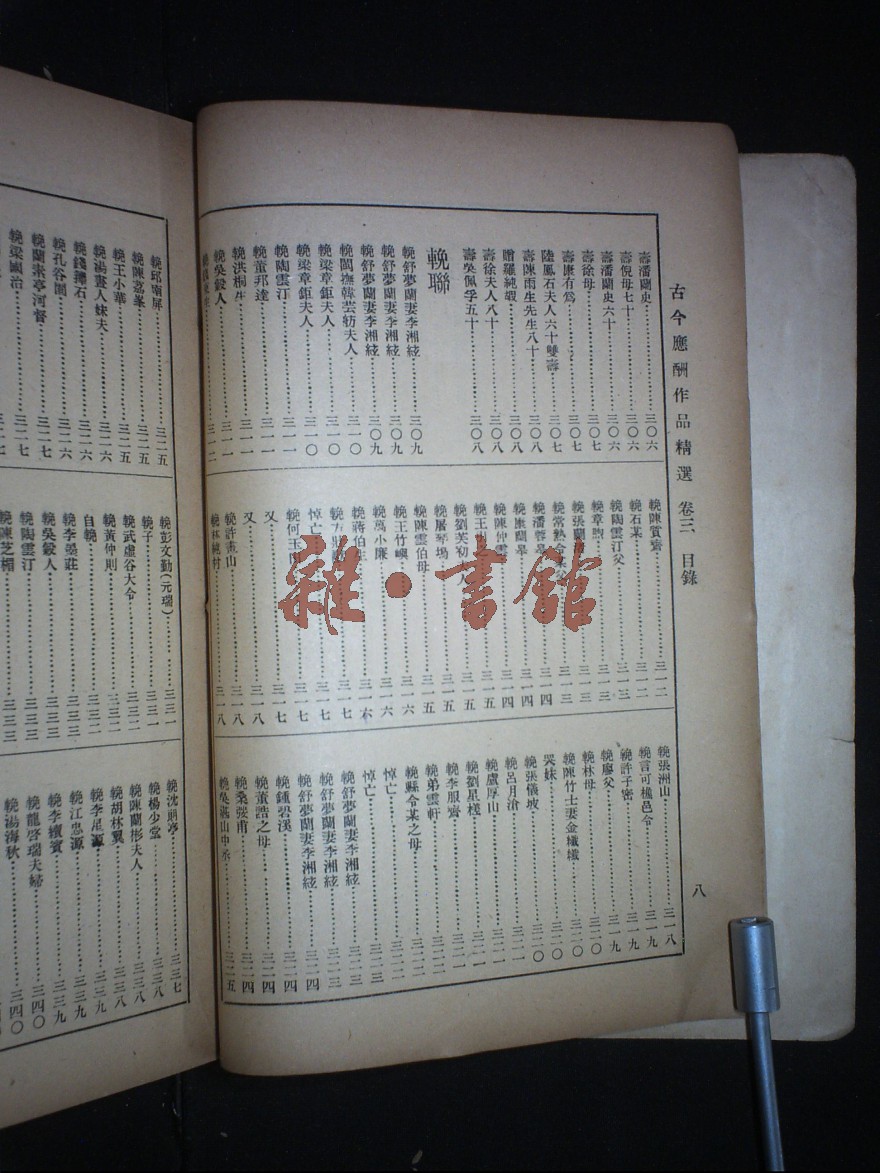 古今應酬作品精選 卷三 目錄
八
壽潘蘭史……三〇六
壽倪母七十……三〇六
壽潘蘭史六十……三〇六
壽徐母……三〇七
壽康有爲……三〇七
陸鳳石夫人六十雙壽……三〇七
壽陳雨生先生八十……三〇八
贈羅純嘏……三〇八
壽徐夫人八十……三〇八
壽吳佩孚五十……三〇八
輓聯
輓舒夢蘭妻李湘絃……三〇九
輓舒夢蘭妻李湘絃……三〇九
輓舒夢蘭妻李湘絃……三〇九
輓閩撫韓芸舫夫人……三一〇
輓梁章鉅夫人……三一〇
輓梁章鉅夫人……三一〇
輓陶雲汀……三一一
輓董邦達……三一一
輓洪桐生……三一一
輓吳穀人……三一一
輓陳賓齋……三一二
輓石某……三一二
輓陶雲汀父……三一三
輓章煦……三一三
輓張蘭
輓常熟令某父
輓潘蓉皋……三一四
輓康蘭皋……三一四
輓陳仲雲
輓王
輓劉芙初
輓屠琴塢……三一五
輓陳雲伯母……三一五
輓王竹嶼……三一六
輓萬小廉……三一六
輓蔣伯生……三一六
輓左
悼亡……三一七
輓何玉
又……三一七
又……三一八
輓許青山……三一八
輓林純村……三一八
輓張洲山……三一八
輓言可樵邑令……三一九
輓許子密……三一九
輓廖父……三一九
輓林母……三二〇
輓陳竹士妻金纖纖……三二〇
哭妹……三二〇
輓張儀坡……三二〇
輓呂月滄……三二一
輓盧厚山……三二一
輓劉星棧……三二一
輓李服齋……三二一
輓弟雲軒……三二二
輓縣令某之母……三二二
悼亡……三二二
悼亡……三二三
輓舒夢蘭妻李湘絃……三二三
輓舒夢蘭妻李湘絃……三二三
輓舒夢蘭妻李湘絃……三二四
輓鍾碧溪……三二四
輓董誥之母……三二四
輓桑弢甫……三二四
輓吳菘山中丞……三二五
輓邱南屏……三二五
輓陳荔峯……三二五
輓王小華……三二五
輓湯晝人妹夫……三二六
輓錢籜石……三二六
輓孔谷園……三二六
輓蘭第亭河督……三二七
輓梁國治……三二七
輓彭文勤(元瑞)……三三一
輓子……三三一
輓武虛谷大令……三三二
輓黃仲則……三三二
自輓……三三二
輓李墨莊……三三三
輓吳穀人……三三三
輓陶雲汀……三三三
輓陳芝楣……三三三
輓沈鼎亭……三三七
輓楊少堂……三三八
輓陳蘭彬夫人……三三八
輓胡林翼……三三八
輓李星源……三三九
輓江忠源……三三九
輓李續賓……三三九
輓龍啓瑞夫婦……三四〇
輓湯海秋……三四〇
雜·書館